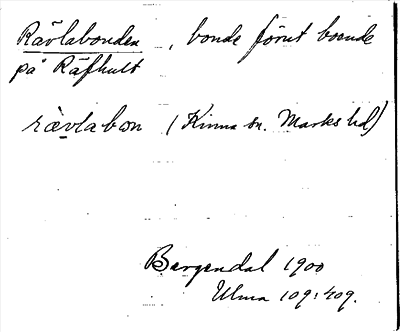 Rävlabonden, bonde förut boende
på Räfhult
rävlabon (Kinna sn. Marks hd)
Bergendal 1900
Ulma 109:409.